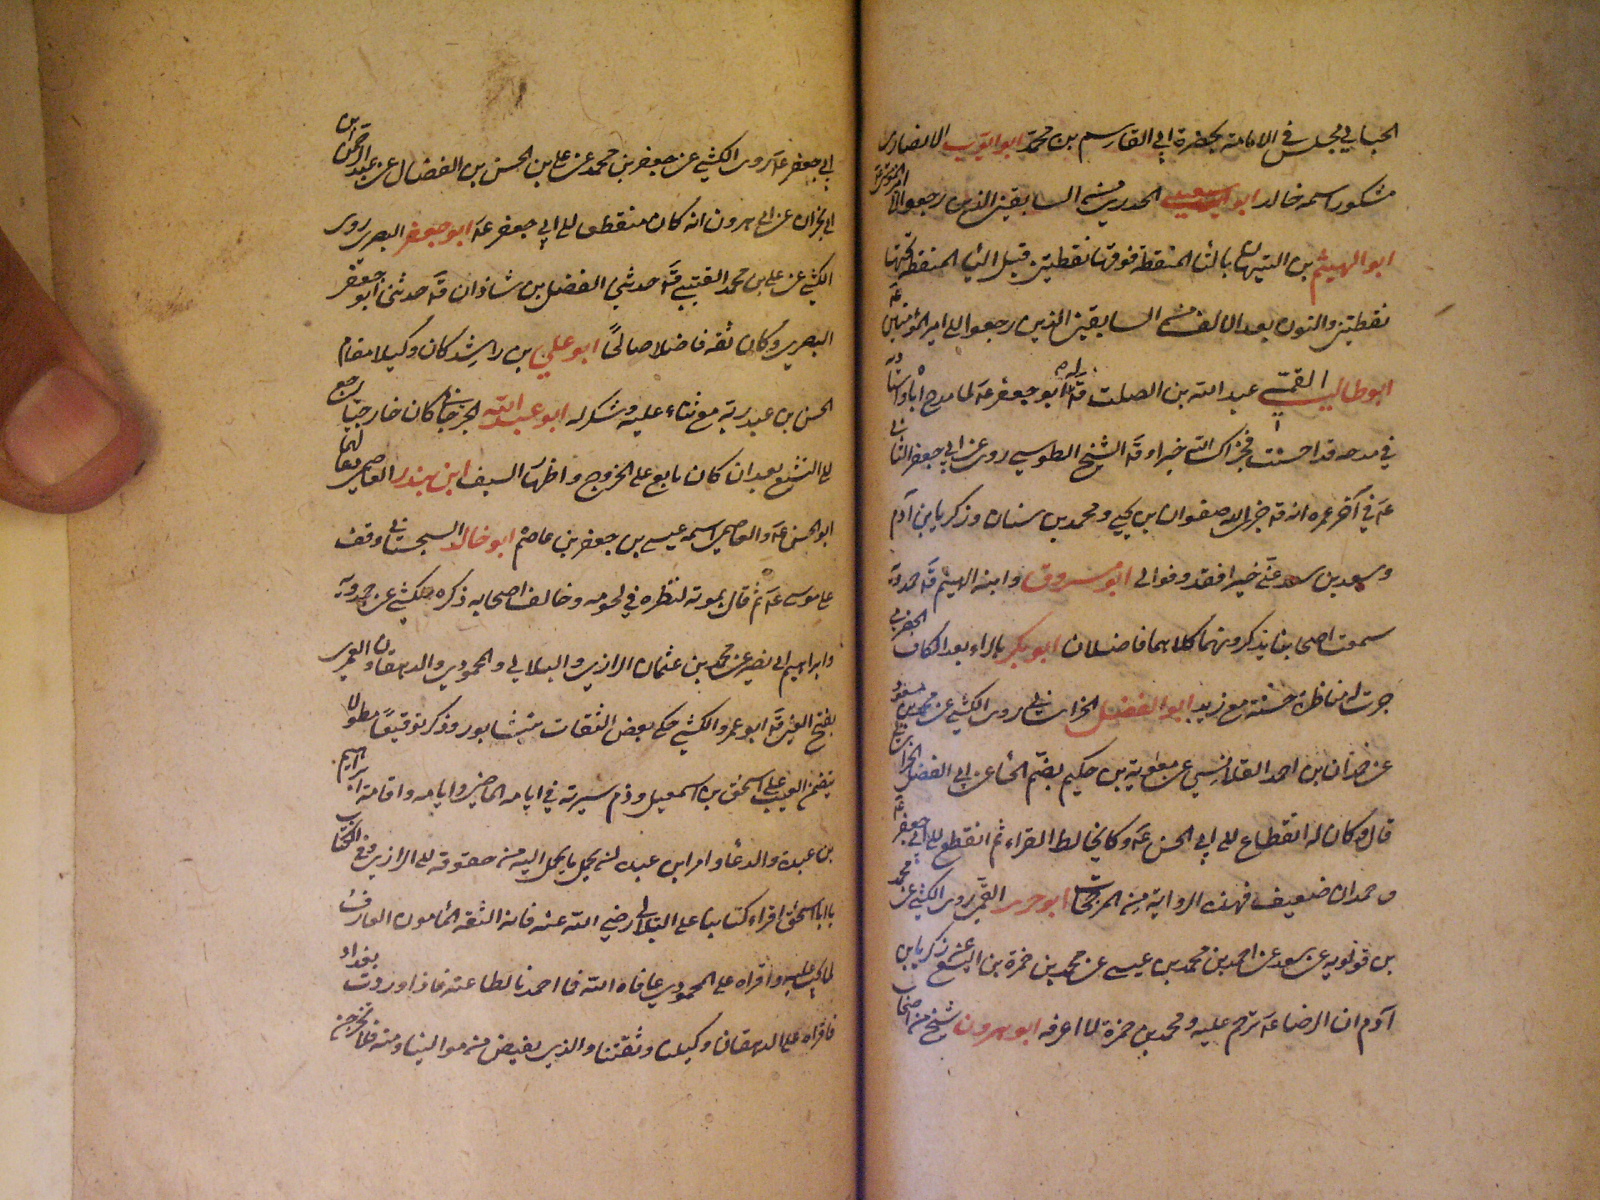 الجبايي مجلس في الامامة بحضرة ابي القاسم بن محمد ابو ايوب الانصاري
مشكور اسمه خالد ابو سعيد الخدري من السابقين الذين رجعوا الى امير المؤمنين
ابو الهيثم بن التيهان بالتاء المنقطة فوقها نقطتين قبل الياء المنقطة تحتها
نقطتين والنون بعد الالف من السابقين الذين رجعوا الى امير المؤمنين عه
ابو طالب القمي عبد الله بن الصلت قه له ابو جعفر عه لما مدح اباه واستاذنه
في مدحه قد احسنت فجزاك الله خيرا وقه الشيخ الطوسي روى عن ابي جعفر الثاني
عه في آخر عمره انه قه جزى الله صفوان بن يحيى ومحمد بن سنان وزكريا بن آدم
وسعد بن سعد عني خيرا فقد وفوا لي ابو مسروق وابنه الهيثم قه حمدويه
سمعت اصحابنا يذكرونهما كلاهما فاضلان ابو بكر بالراء بعد الكاف الحضرمي
جرت له مناظرة حسنة مع زيد ابو الفضل الخراساني روى الكشي عن محمد بن مسعود
عن حمدان بن احمد القلانسي عن معوية بن حكيم بضم الحاء عن ابي الفضل الخراساني
قال وكان له انقطاع الى ابي الحسن عه وكان يخالط القراء ثم انقطع الى ابي جعفر عه
وحمدان ضعيف فهذه الرواية من المرجحات ابو جرير القمي روى الكشي عن محمد
بن قولويه عن سعد عن احمد بن محمد بن عيسى عن محمد بن حمزة بن اليسع عن زكريا بن
آدم ان الرضا عه ترحم عليه ومحمد بن حمزة لا اعرفه ابو هرون شيخ من اصحاب
ابي جعفر عه روى الكشي عن جعفر بن محمد عن علي بن الحسن بن الفضال عن عبد الرحمن بن
ابي نجران عن ابي هرون انه كان منقطعا الى ابي جعفر عه ابو جعفر البصري روى
الكشي عن علي بن محمد القتيبي قه حدثني الفضل بن شاذان قه حدثني ابو جعفر
البصري وكان ثقة فاضلا صالحا ابو علي بن راشد كان وكيلا مقام
الحسن بن عبد ربه مع ثناء عليه وشكر له ابو عبد الله الجرجاني كان خارجيا رجع
الى التشيع بعد ان كان بايع على الخروج واظهار السيف ابن بندر العاصمي لقبا لهما
ابو الحسن عه والعاصمي اسمه عيسى بن جعفر بن عاصم ابو خالد السجستاني وقف
على موسى عه ثم قال بموته لنظره في نجومه وخالف اصحابه ذكره الكشي عن حمدويه
وابراهيم ابني نصير عن محمد بن عثمان الرازي والبلالي والمحمودي والدهقان والعمري
بفتح العين قه ابو عمرو الكشي حكى بعض الثقات بنيشابور وذكر توقيعا مطولا
يتضمن العيب على اسحق بن اسمعيل وذم سيرته في ايامه الماضي وايامه واقامة ابراهيم
بن عبده والدعاء وامر ابن عبده ان يحمل ما يحمل اليه من حقوقه الى الرازي وفي الكتاب
يا با اسحق اقراء كتابنا على البلالي رضي الله عنه فانه الثقة المامون العارف
بما يجب عليه واقراه على المحمودي عافاه الله فما احمدنا لطاعته فاذا وردت بغداد
فاقراه على الدهقان وكيلنا وثقتنا والذي يقبض من موالينا ومنه فلا تخرجن